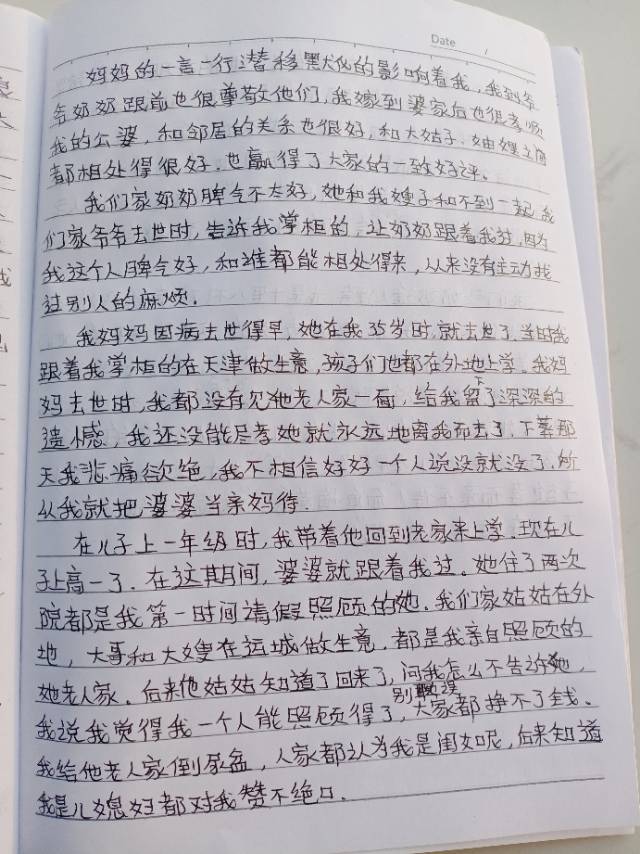 Date /
妈妈的一言一行潜移默化的影响着我，我到爷
爷奶奶跟前也很尊敬他们，我嫁到婆家后也很孝顺
我的公婆，和邻居的关系也很好，和大姑子、妯娌之间
都相处得很好，也赢得了大家的一致好评。
我们家奶奶脾气不太好，她和我嫂子和不到一起，我
们家爷爷去世时，告诉我掌柜的，让奶奶跟着我过，因为
我这个人脾气好，和谁都能相处得来，从来没有主动找
过别人的麻烦．
我妈妈因病去世得早，她在我35岁时就去世了，当时我
跟着我掌柜的在天津做生意，孩子们也都在外地上学．我妈
妈去世时，我都没有见他老人家一面，给我留下了深深的
遗憾，我还没能尽孝她就永远地离我而去了．下葬那
天我悲痛欲绝，我不相信好好一个人说没就没了．所
以我就把婆婆当亲妈待．
在儿子上一年级时，我带着他回到老家来上学．现在儿
子上高一了．在这期间，婆婆就跟着我过。她住了两次
院都是我第一时间请假照顾的她．我们家姑姑在外
地，大哥和大嫂在运城做生意，都是我亲自照顾的
她老人家．后来他姑姑知道了回来了，问我怎么不告诉她，
我说我觉得我一个人能照顾得了，别耽误大家都挣不了钱、
我给他老人家倒尿盆，人家都认为我是闺女呢，后来知道
我是儿媳妇都对我赞不绝口．